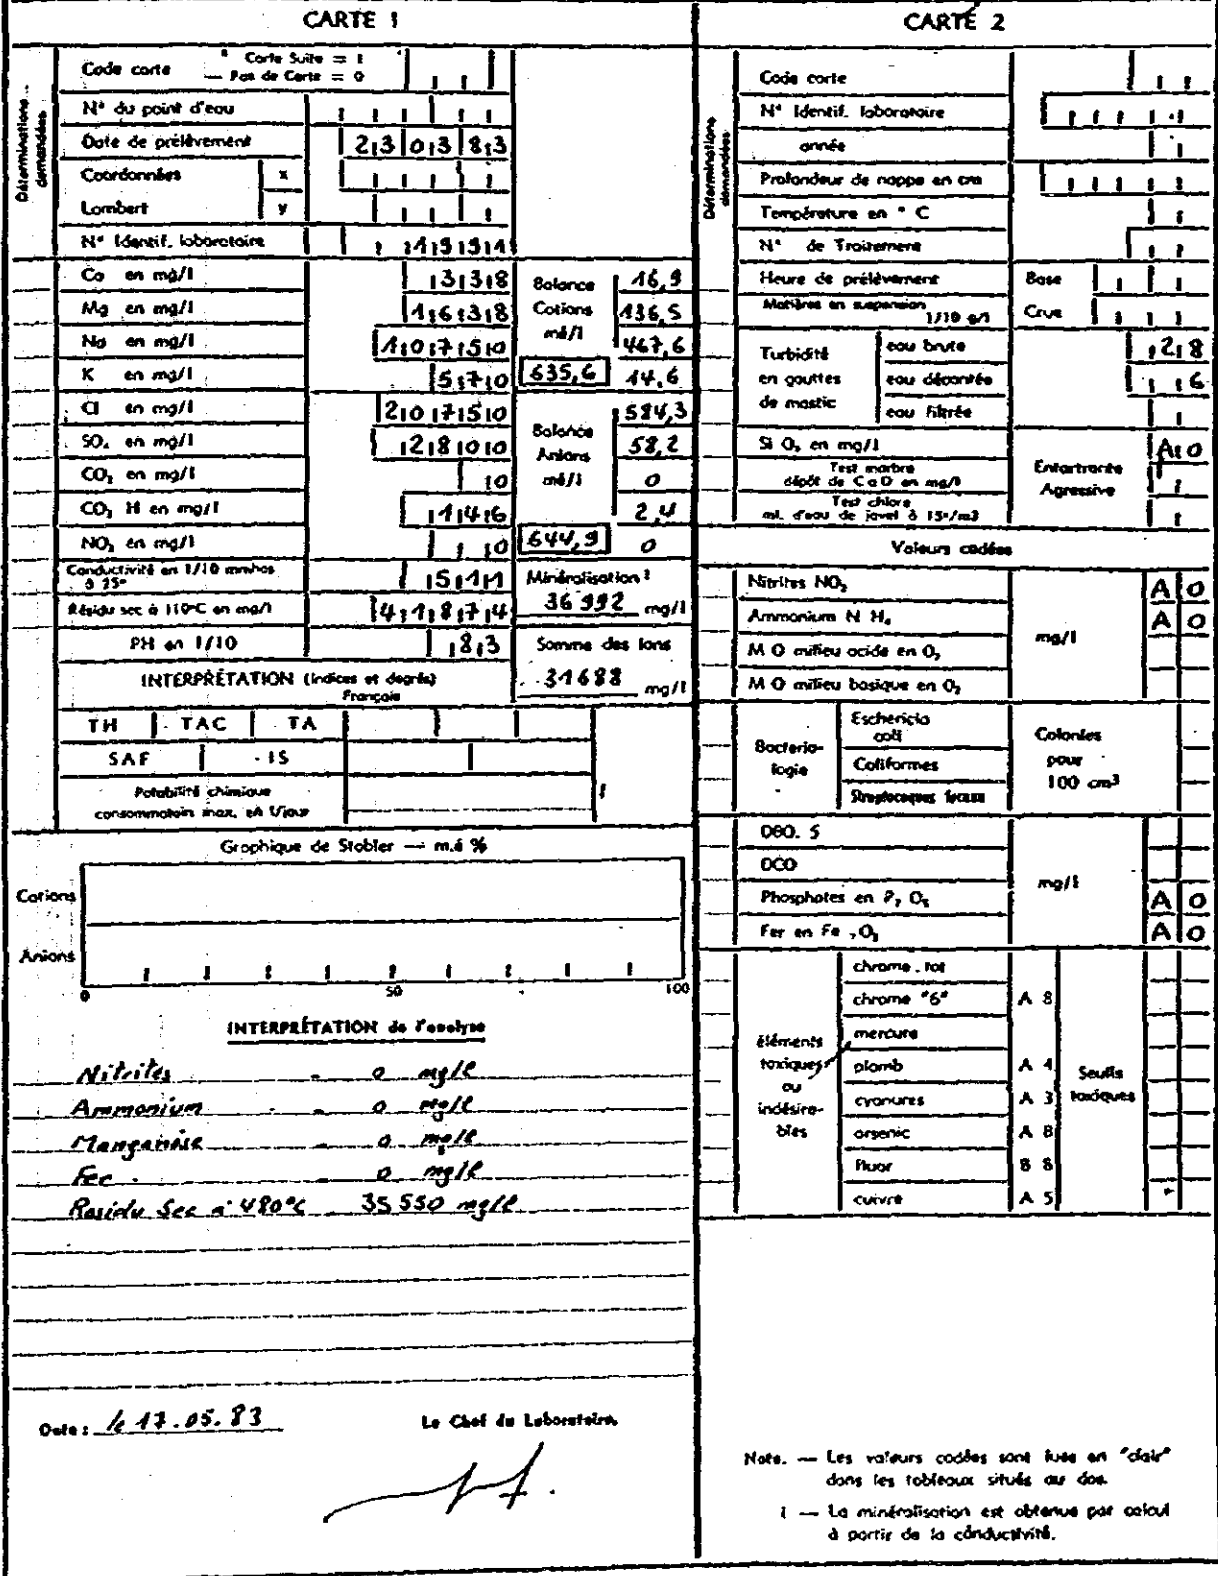 CARTE 1
Déterminations demandées
Code carte
" Carte Suite = 1
— Pas de Carte = 0
N° du point d'eau
Date de prélèvement 23 03 83
Coordonnées x
Lambert y
N° Identif. laboratoire
Ca en mg/l 338
Mg en mg/l 1638
Na en mg/l 10750
K en mg/l 570
Cl en mg/l 20750
SO₄ en mg/l 2800
CO₃ en mg/l 0
CO₃ H en mg/l 146
NO₃ en mg/l 0
Conductivité en 1/10 mmhos à 25° 511
Résidu sec à 110°C en mg/l 41874
PH en 1/10 83
Balance Cations mé/l
16,9
136,5
467,6
635,6 14,6
Balance Anions mé/l
584,3
58,2
0
2,4
644,9 0
Minéralisation 1
36 992 mg/l
Somme des Ions
31688 mg/l
INTERPRÉTATION (indices et degrés)
Français
TH TAC TA
SAF IS
Potabilité chimique
Graphique de Stabler — m.é %
Cations
Anions
0 50 100
INTERPRÉTATION de l'analyse
Nitrites - 0 mg/l
Ammonium - 0 mg/l
Manganèse - 0 mg/l
Fer - 0 mg/l
Résidu Sec à 480°C 35 550 mg/l
Date : le 17.05.83
Le Chef du Laboratoire,
CARTE 2
Déterminations demandées
Code carte
N° Identif. laboratoire
année
Profondeur de nappe en cm
Température en ° C
N° de Traitement
Heure de prélèvement Base
Matières en suspension 1/10 g/l Crue
Turbidité en gouttes de mastic
eau brute 28
eau décantée 6
eau filtrée
Si O₂ en mg/l A 0
Test marbre
dépôt de CaO en mg/l
Entartrante
Agressive
Test chlore
ml. d'eau de javel à 15°/m3
Valeurs codées
Nitrites NO₂ A 0
Ammonium N H₄ A 0
mg/l
M O milieu acide en O₂
M O milieu basique en O₂
Bactériologie
Eschericia coli
Coliformes
Streptocoques fécaux
Colonies pour 100 cm³
DBO. 5
DCO
mg/l
Phosphates en P₂ O₅ A 0
Fer en Fe₂O₃ A 0
éléments toxiques ou indésirables
chrome . tot
chrome "6" A 8
mercure
plomb A 4
cyanures A 3
arsenic A 8
fluor B 8
cuivre A 5
Seuils toxiques
Note. — Les valeurs codées sont lues en "clair"
dans les tableaux situés au dos.
1 — La minéralisation est obtenue par calcul
à partir de la conductivité.